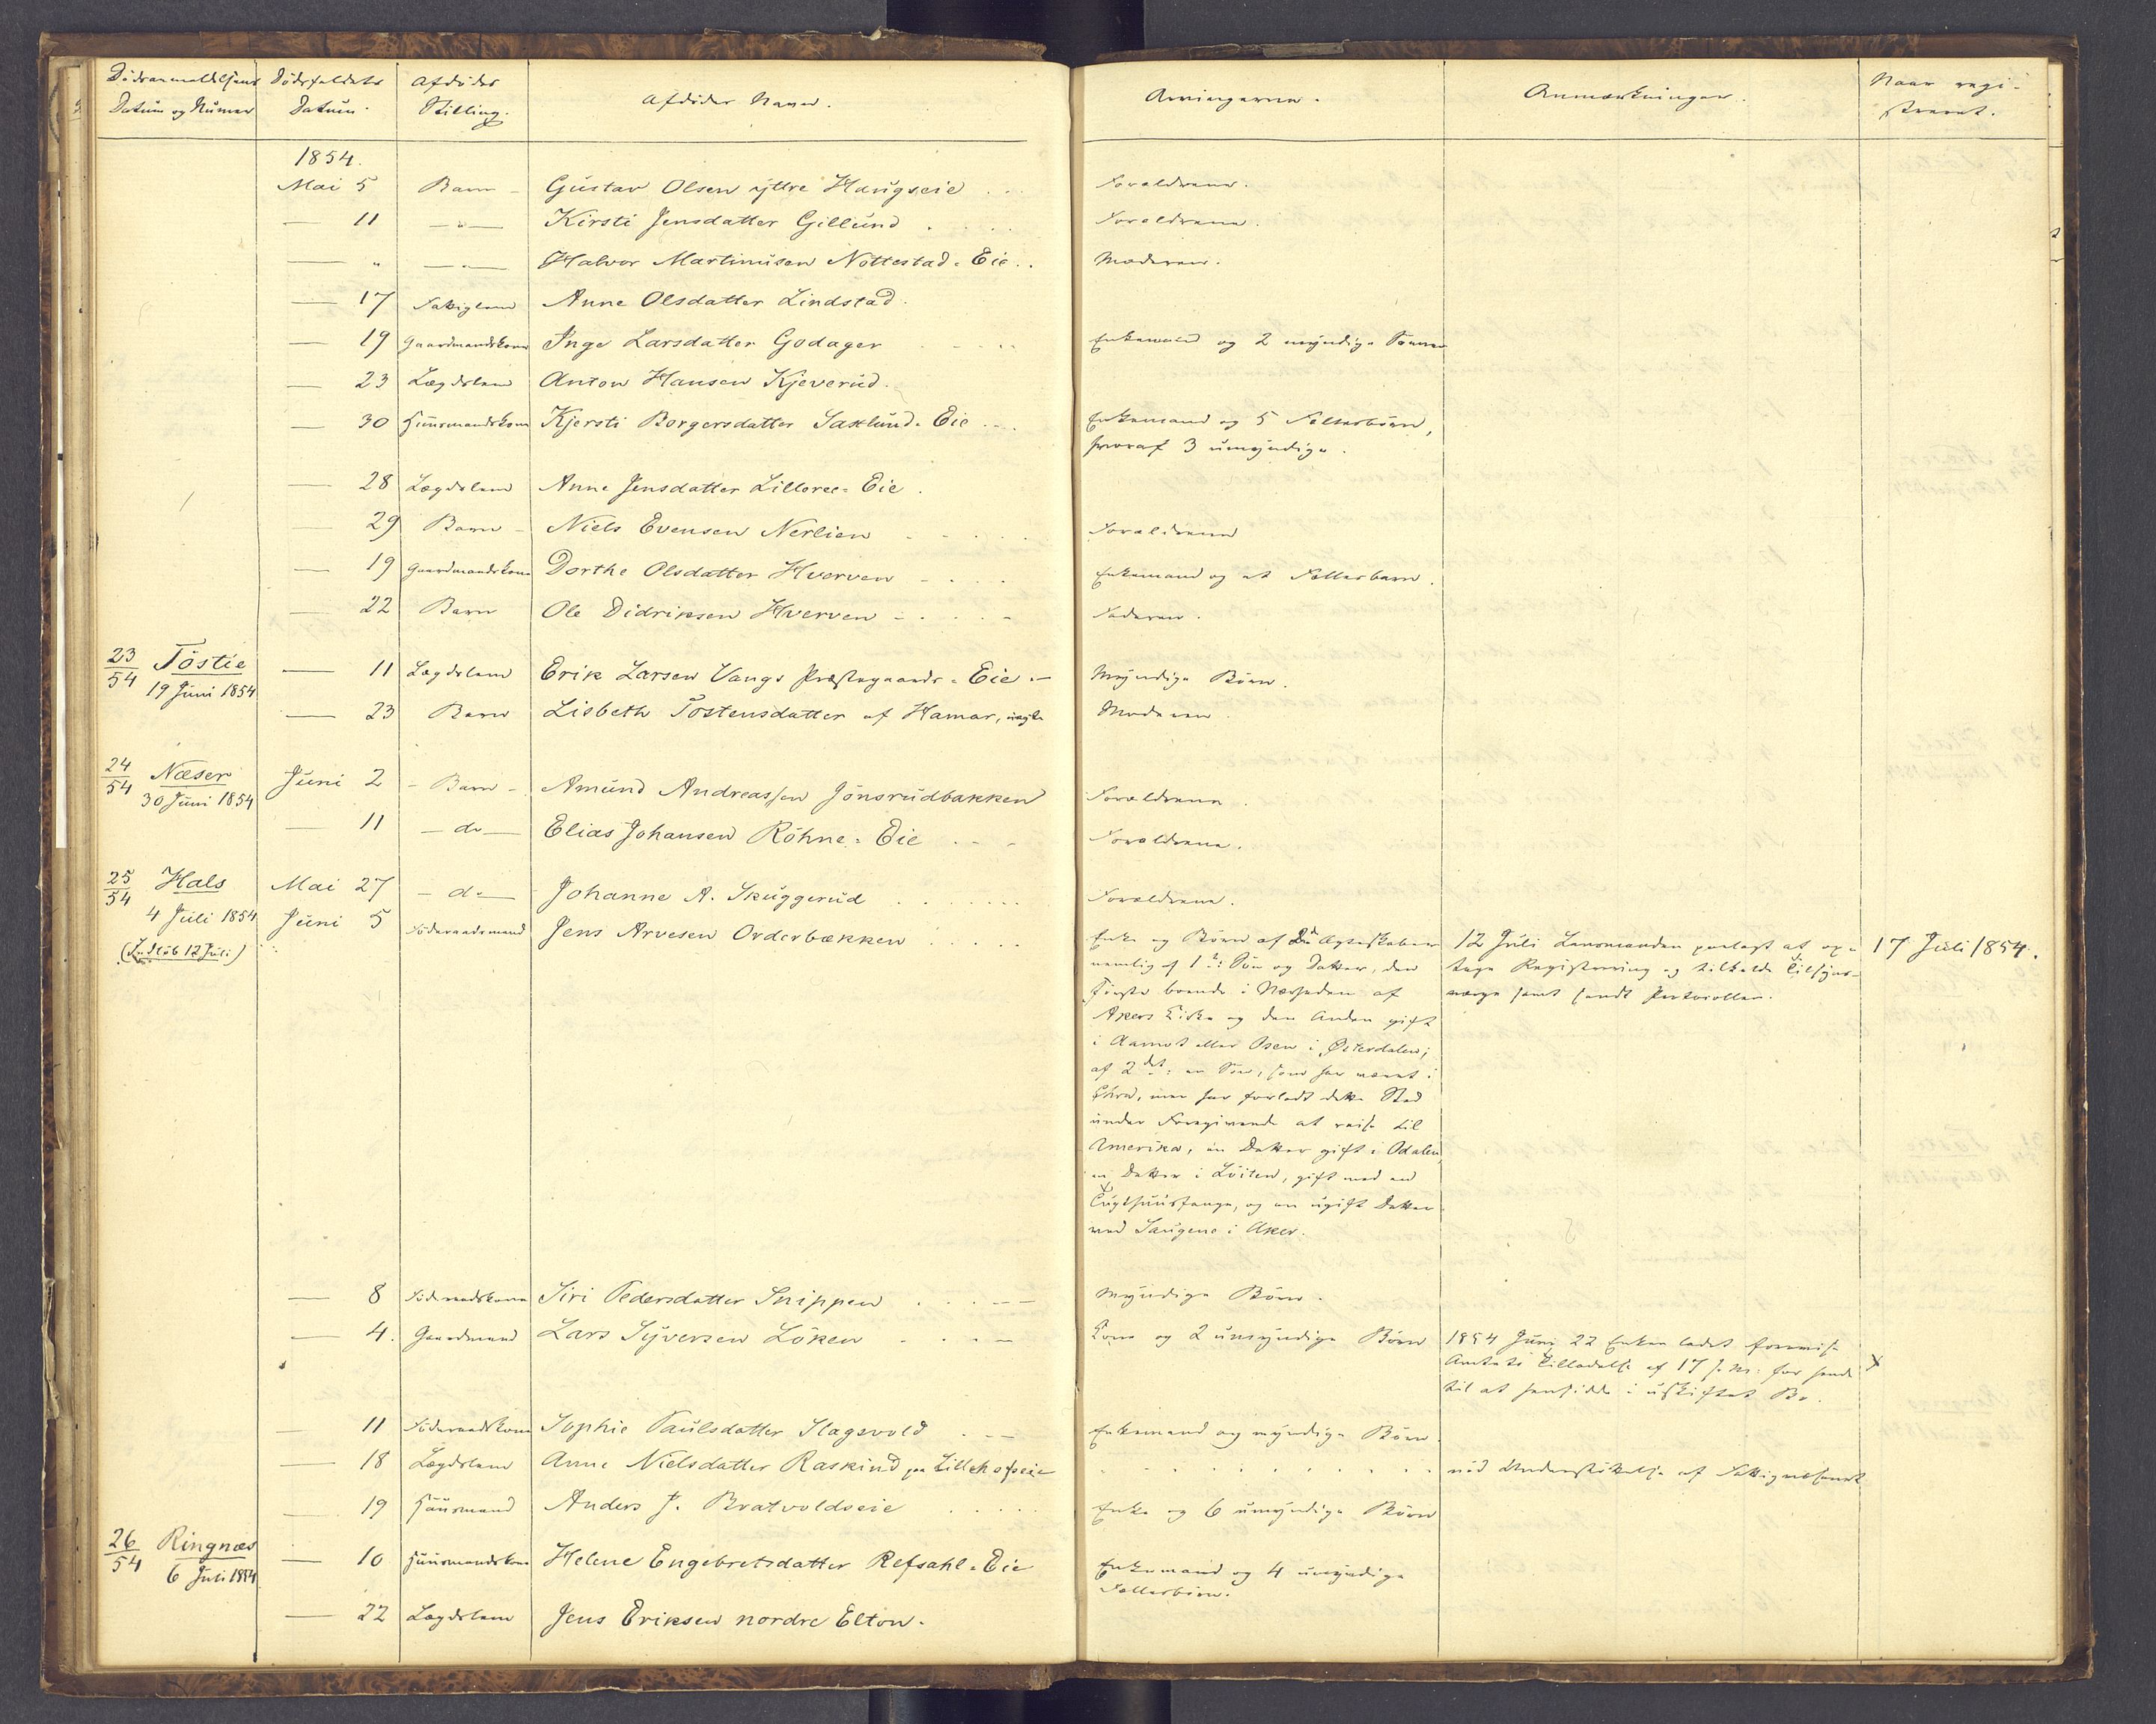 Dödsanmeldelsens Datum og Numer
Dödsfaldets Datum.
Afdödes Stilling.
Afdödes Navn.
Arvingerne.
Anmærkninger.
Naar registreret.
1854.
Mai 5 Barn Gustav Olsen yttre Haugseie Forældrene.
— 11 —"— Kirsti Jensdatter Gillund Forældrene.
— " —"— Halvor Martinusen Nøttestad-Eie Moderen.
— 17 Fattiglem Anne Olsdatter Lindstad.
— 19 Gaardmandskone Inge Larsdatter Godager Enkemand og 2 myndige Sønner
— 23 Lægdslem Anton Hansen Kjeverud.
— 30 Huusmandskone Kjersti Borgersdatter Saxlund-Eie Enkemand og 5 Fællesbörn,
hvoraf 3 umyndige.
— 28 Lægdslem Anne Jensdatter Lilleree-Eie.
— 29 Barn Niels Evensen Nerlien Forældrene
— 19 Gaardmandskone Dorthe Olsdatter Hverven Enkemand og et Fællesbarn.
— 22 Barn Ole Didriksen Hverven Faderen.
23/54 Töstie — 11 Lægdslem Erik Larsen Vangs Præstegaards-Eie Myndige Börn.
19 Juni 1854
— 23 Barn Lisbeth Tostensdatter af Hamar, Moderen
24/54 Næser Juni 2 Barn Amund Andreassen Jönsrudbakken Forældrene
30 Juni 1854
— 11 —do— Elias Johansen Röhne-Eie Forældrene.
25/54 Hals Mai 27 —do— Johanne A. Skuggerud Forældrene.
4 Juli 1854 Juni 5 Föderaadsmand Jens Arvesen Orderbækken
(Indlöb 12 Juli)
Enke og Börn af 2de Ægteskaber
nemlig af 1ste: Sön og Datter, den
Förste boende i Nærheden af
Akers Kirke og den Anden gift
i Aamot eller Osen i Østerdalen;
af 2det: en Sön, som har været i
Chra, men har forladt dette Sted
under Foregivende at reise til
Amerika, en Datter gift i Odalen,
en Datter i Löiten, gift med en
Tugthuusfange, og en ugift Datter
ved Saugene i Aker.
12 Juli Lensmanden paalagt at op-
tage Registrering og tilkalde Tilsyns-
værge samt sendt Protocollen.
17 Juli 1854.
— 8 Föderaadskone Siri Pedersdatter Snippen Myndige Börn.
— 4. Gaardmand Lars Syversen Löken Kone og 2 umyndige Börn
1854 Juni 22 Enken ladet forevise
Amtets Tilladelse af 17 s. M. for hende
til at hensidde i uskiftet Bo.
x
— 11 Föderaadskone Sophie Paulsdatter Slagsvold Enkemand og myndige Börn
— 18 Lægdslem Anne Nielsdatter Raskind paa Lillehofseie nöd Understöttelse af Fattigvæsenet
— 19 Huusmand Anders J. Bratvoldseie Enke og 6 umyndige Börn
26/54 Ringnæs — 10 Huusmandskone Helene Engebretsdatter Refsahl-Eie Enkemand og 4 umyndige
6 Juli 1854 Fællesbörn.
— 22 Lægdslem Jens Eriksen nordre Elton.